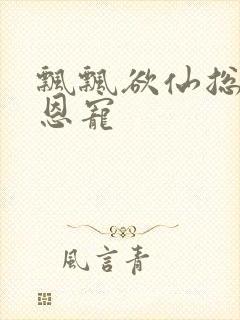 飄飄欲仙总
恩寵
風言青